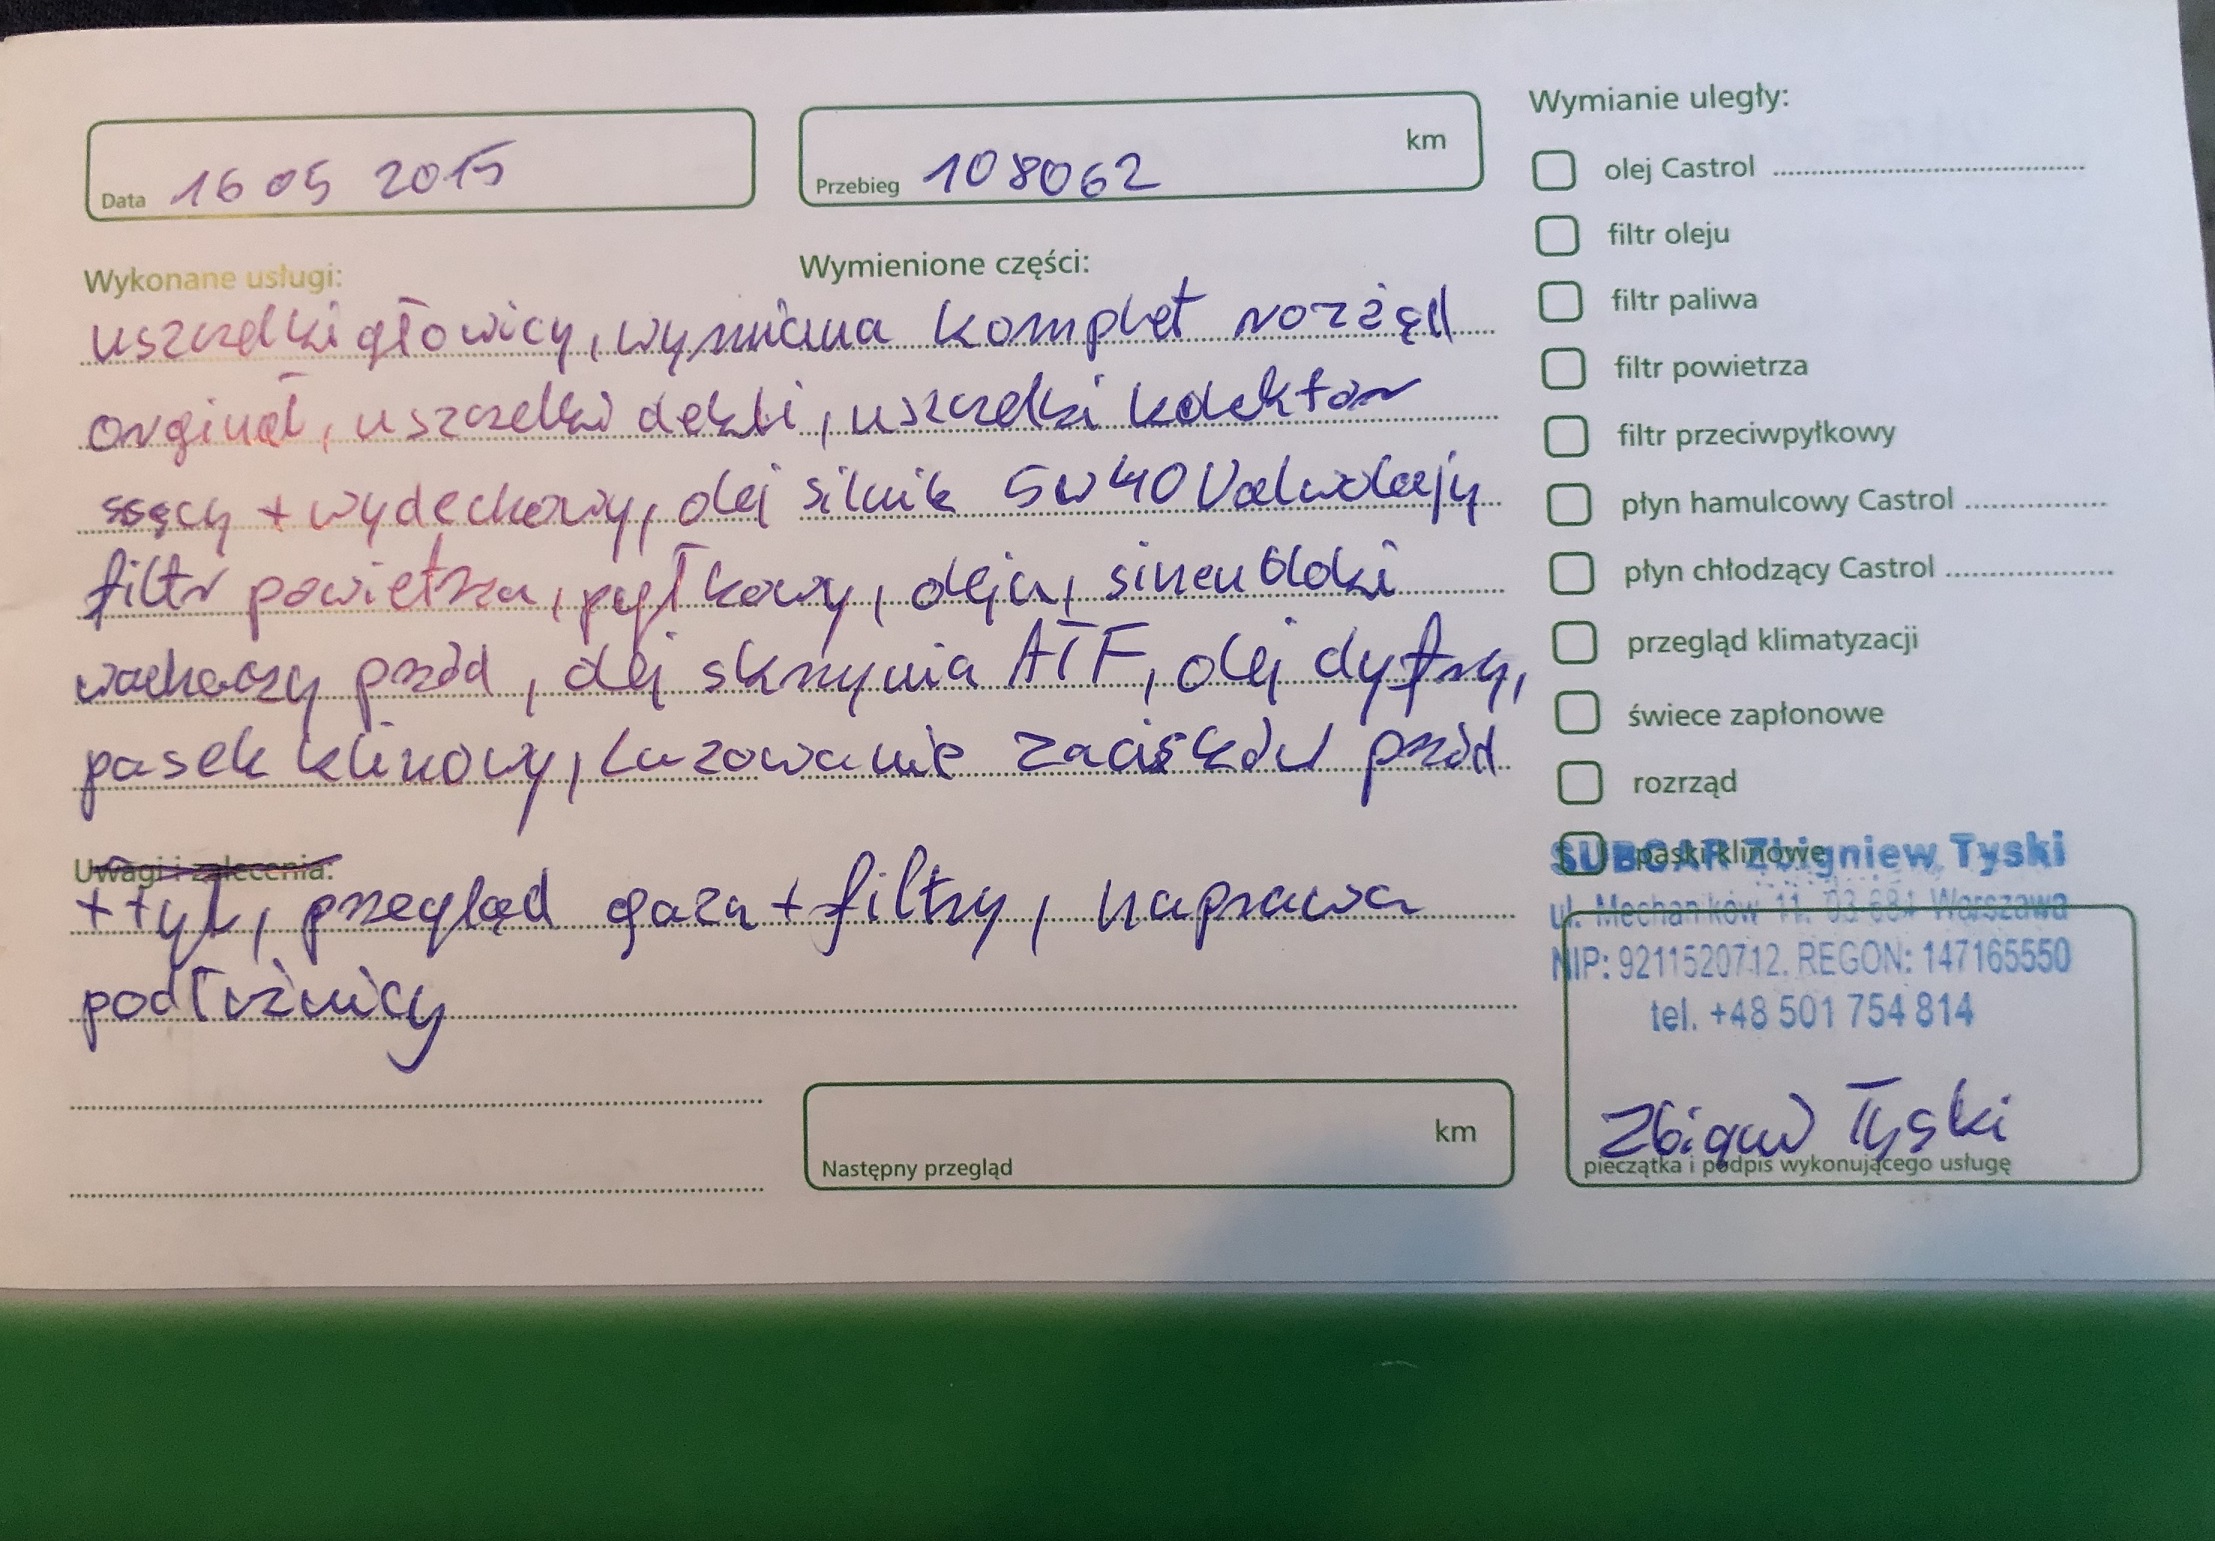 Data 16 05 2015
Przebieg 108062 km
Wykonane usługi:
Wymienione części:
uszczelki głowicy, wymiana komplet rozżąd
orginał, uszczelki dekli, uszczelki kolektor
ssący + wydechowy, olej silnik 5w40
filtr powietrza, pyłkowy, oleju, sinenbloki
wachaczy przód, olej skrzynia ATF, olej dyfry,
pasek klinowy, luzowanie zacisków przód
Uwagi i zalecenia:
+ tył, przegląd gazu + filtry, naprawa
podłużnicy
Następny przegląd km
Wymianie uległy:
olej Castrol
filtr oleju
filtr paliwa
filtr powietrza
filtr przeciwpyłkowy
płyn hamulcowy Castrol
płyn chłodzący Castrol
przegląd klimatyzacji
świece zapłonowe
rozrząd
paski klinowe
SUBGAR Zbigniew Tyski
ul. Mechaników 11, 03-684 Warszawa
NIP: 9211520712. REGON: 147165550
tel. +48 501 754 814
Zbigniew Tyski
pieczątka i podpis wykonującego usługę